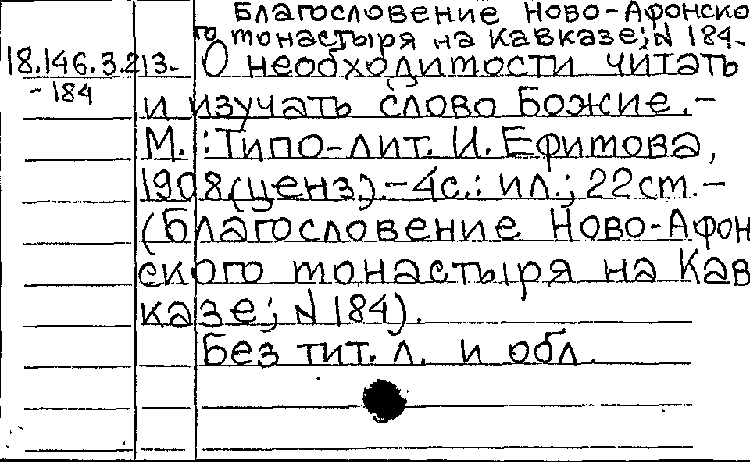 Благословение Ново-Афонско
го монастыря на Кавказе; N 184.
18.146.3.213- О необходимости читать
-184
и изучать слово Божие.-
М.: Типо-лит. И. Ефимова,
1908(ценз.).-4с.: ил.; 22см.-
(Благословение Ново-Афон
ского монастыря на Кав
казе; N 184).
Без тит. л. и обл.